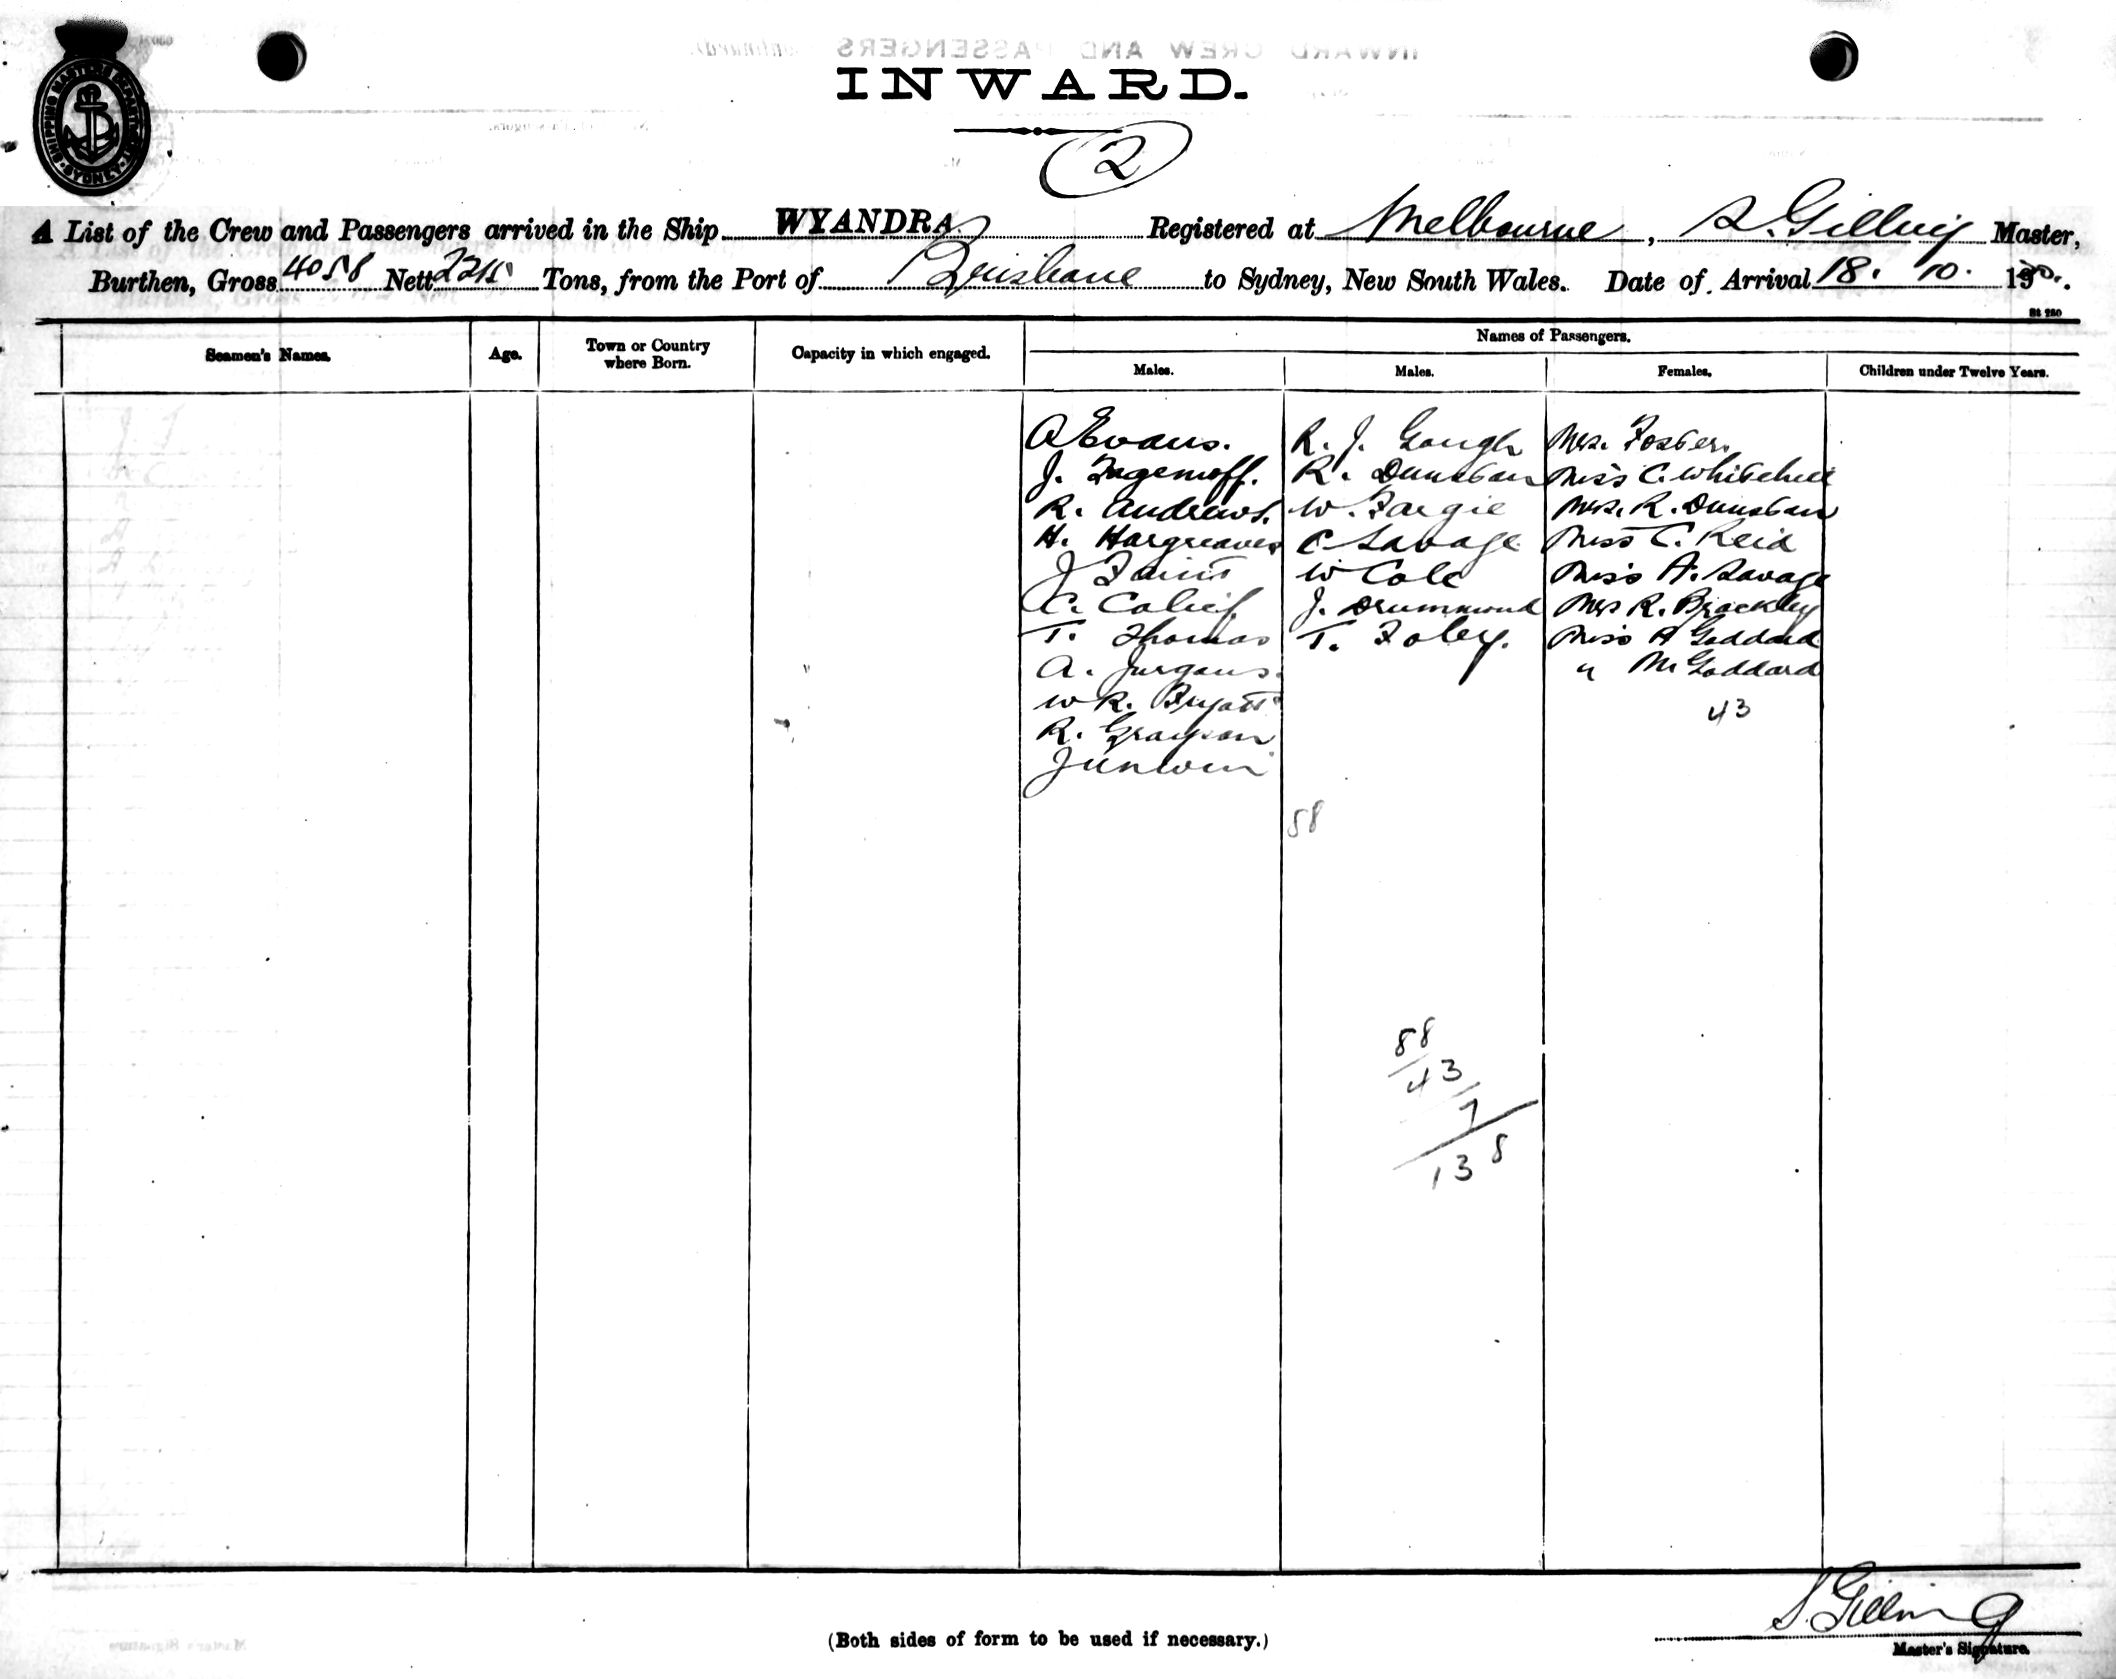 SHIPPING MASTERS DEPARTMENT SYDNEY
INWARD.
2
A List of the Crew and Passengers arrived in the Ship WYANDRA Registered at Melbourne, Master,
Burthen, Gross 4058 Nett Tons, from the Port of Brisbane to Sydney, New South Wales. Date of Arrival 18. 10. 19
Seamen's Names. Age. Town or Country where Born. Capacity in which engaged. Names of Passengers.
Males. Males. Females. Children under Twelve Years.
A Evans. R. J. Gough Mrs. Foster.
J. R. Dunstan Miss C. Whitehill
R. Andrews. W. Fargie Mrs. R. Dunstan
H. Hargreaves C Savage Miss C. Reid
J W Cole Miss A. Savage
C. J. Drummond Mrs R. Brackley
T. Thomas T. Foley. Miss A Goddard
A. Jurgens. " M Goddard
W R. Fryatt 43
R. Grayson
J Unwin
58
88
43
7
138
S. Gilling
(Both sides of form to be used if necessary.)
Master's Signature.